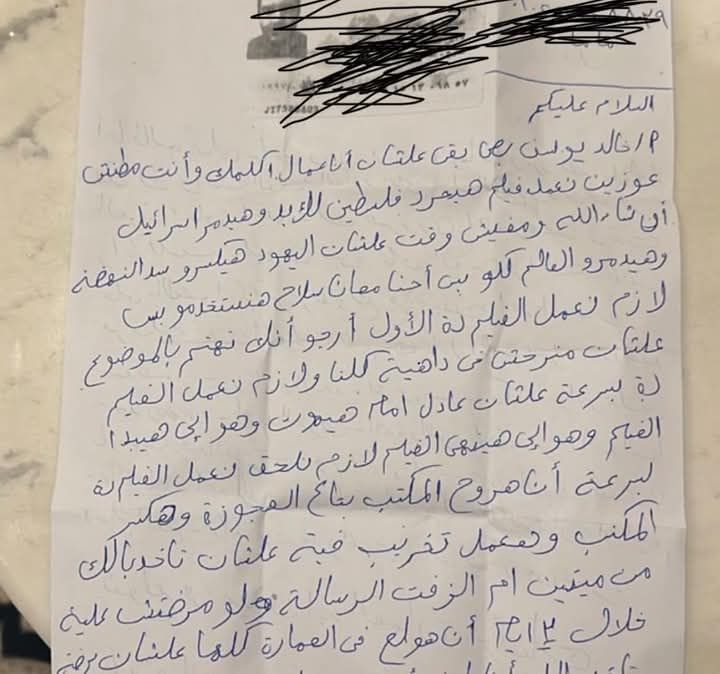 السلام عليكم
م/ خالد يوسف بص بقى علشان أنا عمال اكلمك وأنت مطنش
عوزين نعمل فيلم هيحرر فلسطين للأبد وهيدمر اسرائيل
أن شاء الله ومفيش وقت علشان اليهود هيكسرو سد النهضة
وهيدمرو العالم كلو بس أحنا معانا سلاح هنستخدمو بس
لازم نعمل الفيلم دة الأول أرجو أنك تهتم بالموضوع
علشان منرحش فى داهية كلنا ولازم نعمل الفيلم
دة بسرعة علشان عادل امام هيموت وهو إلى هيبدأ
الفيلم وهو إلى هينهى الفيلم لازم نلحق نعمل الفيلم دة
بسرعة أنا هروح المكتب بتاع العجوزة وهكسر
المكتب وهعمل تخريب فيه علشان تاخد بالك
من ميتين ام الزفت الرسالة ولو مردتش عليه
خلال ٢ ايام أنا هولع فى العمارة كلها علشان